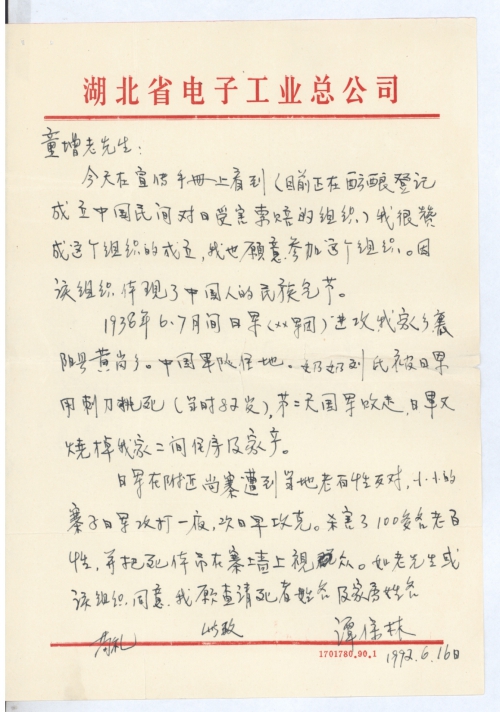 湖北省电子工业总公司
童增老先生：
今天在宣传手册上看到（目前正在酝酿登记
成立中国民间对日受害索赔的组织）我很赞
成这个组织的成立，我也愿意参加这个组织。因
该组织体现了中国人的民族气节。
1938年6.7月间日军（××军团）进攻我家乡襄
阳县黄岗乡。中国军队住地。奶奶刘氏被日军
用刺刀挑死（当时82岁），第二天国军败走，日军又
烧掉我家二间住房及家产。
日军在附近尚寨遭到当地老百姓反对，小小的
寨子日军攻打一夜，次日早攻克。杀害了100多名老百
姓，并把死体吊在寨墙上视众。如老先生或
该组织同意，我愿查请死者姓名及家属姓名
此致
敬礼
谭保林
1701780.90.1
1992.6.16日